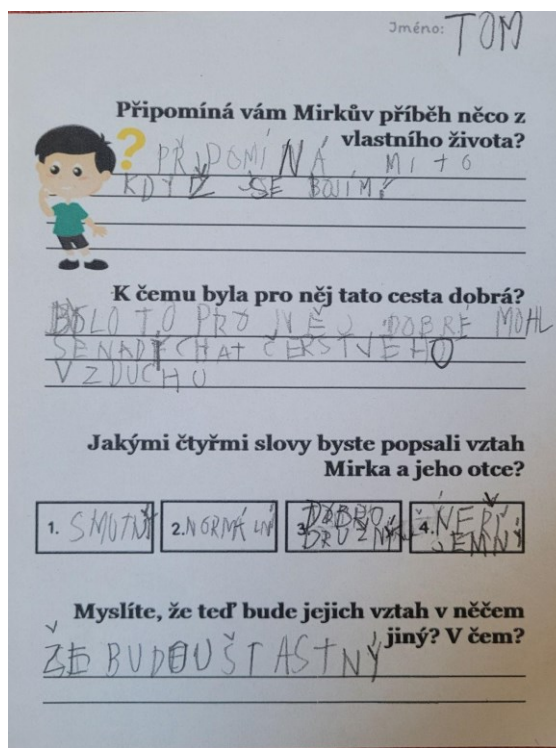 Jméno: TOM
Připomíná vám Mirkův příběh něco z
vlastního života?
PŘIPOMÍNÁ MI TO
KDYŽ SE BOJÍM.
K čemu byla pro něj tato cesta dobrá?
BYLO TO PRO NĚJ DOBRÉ MOHL
SE NADÝCHAT ČERSTVÉHO
VZDUCHU
Jakými čtyřmi slovy byste popsali vztah
Mirka a jeho otce?
1. SMUTNÝ 2. NORMÁLNÍ 3. DOBRO
DRUŽNÝ 4.
Myslíte, že teď bude jejich vztah v něčem
jiný? V čem?
ŽE BUDOU ŠTASTNÝ